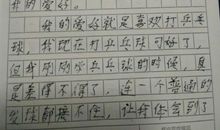 我的爱好。
我的爱好就是喜欢打乒乓
球，我现在打乒乓球可好了，
但我刚刚学乒乓球的时候，真
是差得不得了，连一个普通的
发球都接不住，让我体会到了